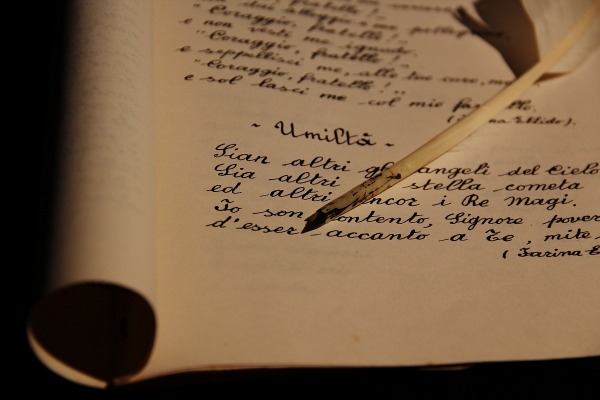 "Coraggio, fratello!
e non verti me ignudo.
"Coraggio, fratello!"
e seppellisci me, alle tue cure,
"Coraggio, fratello!"
e sol lasci me col mio
- Umiltà -
Sian altri gli angeli del Cielo
Sia altri stella cometa
ed altri ancor i Re Magi.
Io son contento, Signore
d'esser accanto a Te, mite
(Farina E